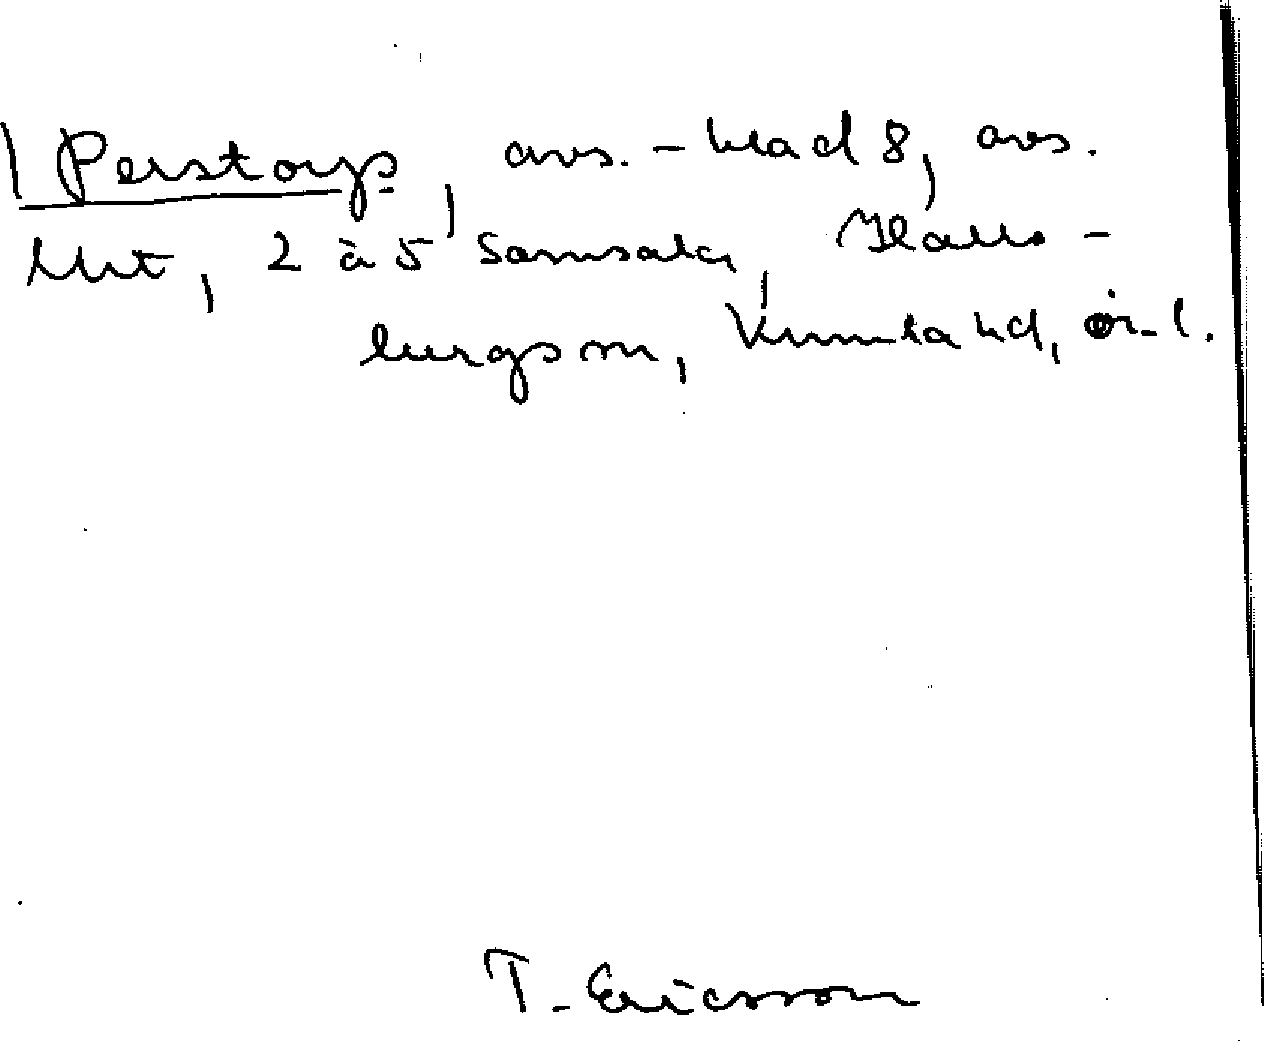 Perstorp, avs.-blad 8, avs.
2 à 5 Samsala, Halls-
bergs sn, Kumla hd, ör. l.
T. Ericsson